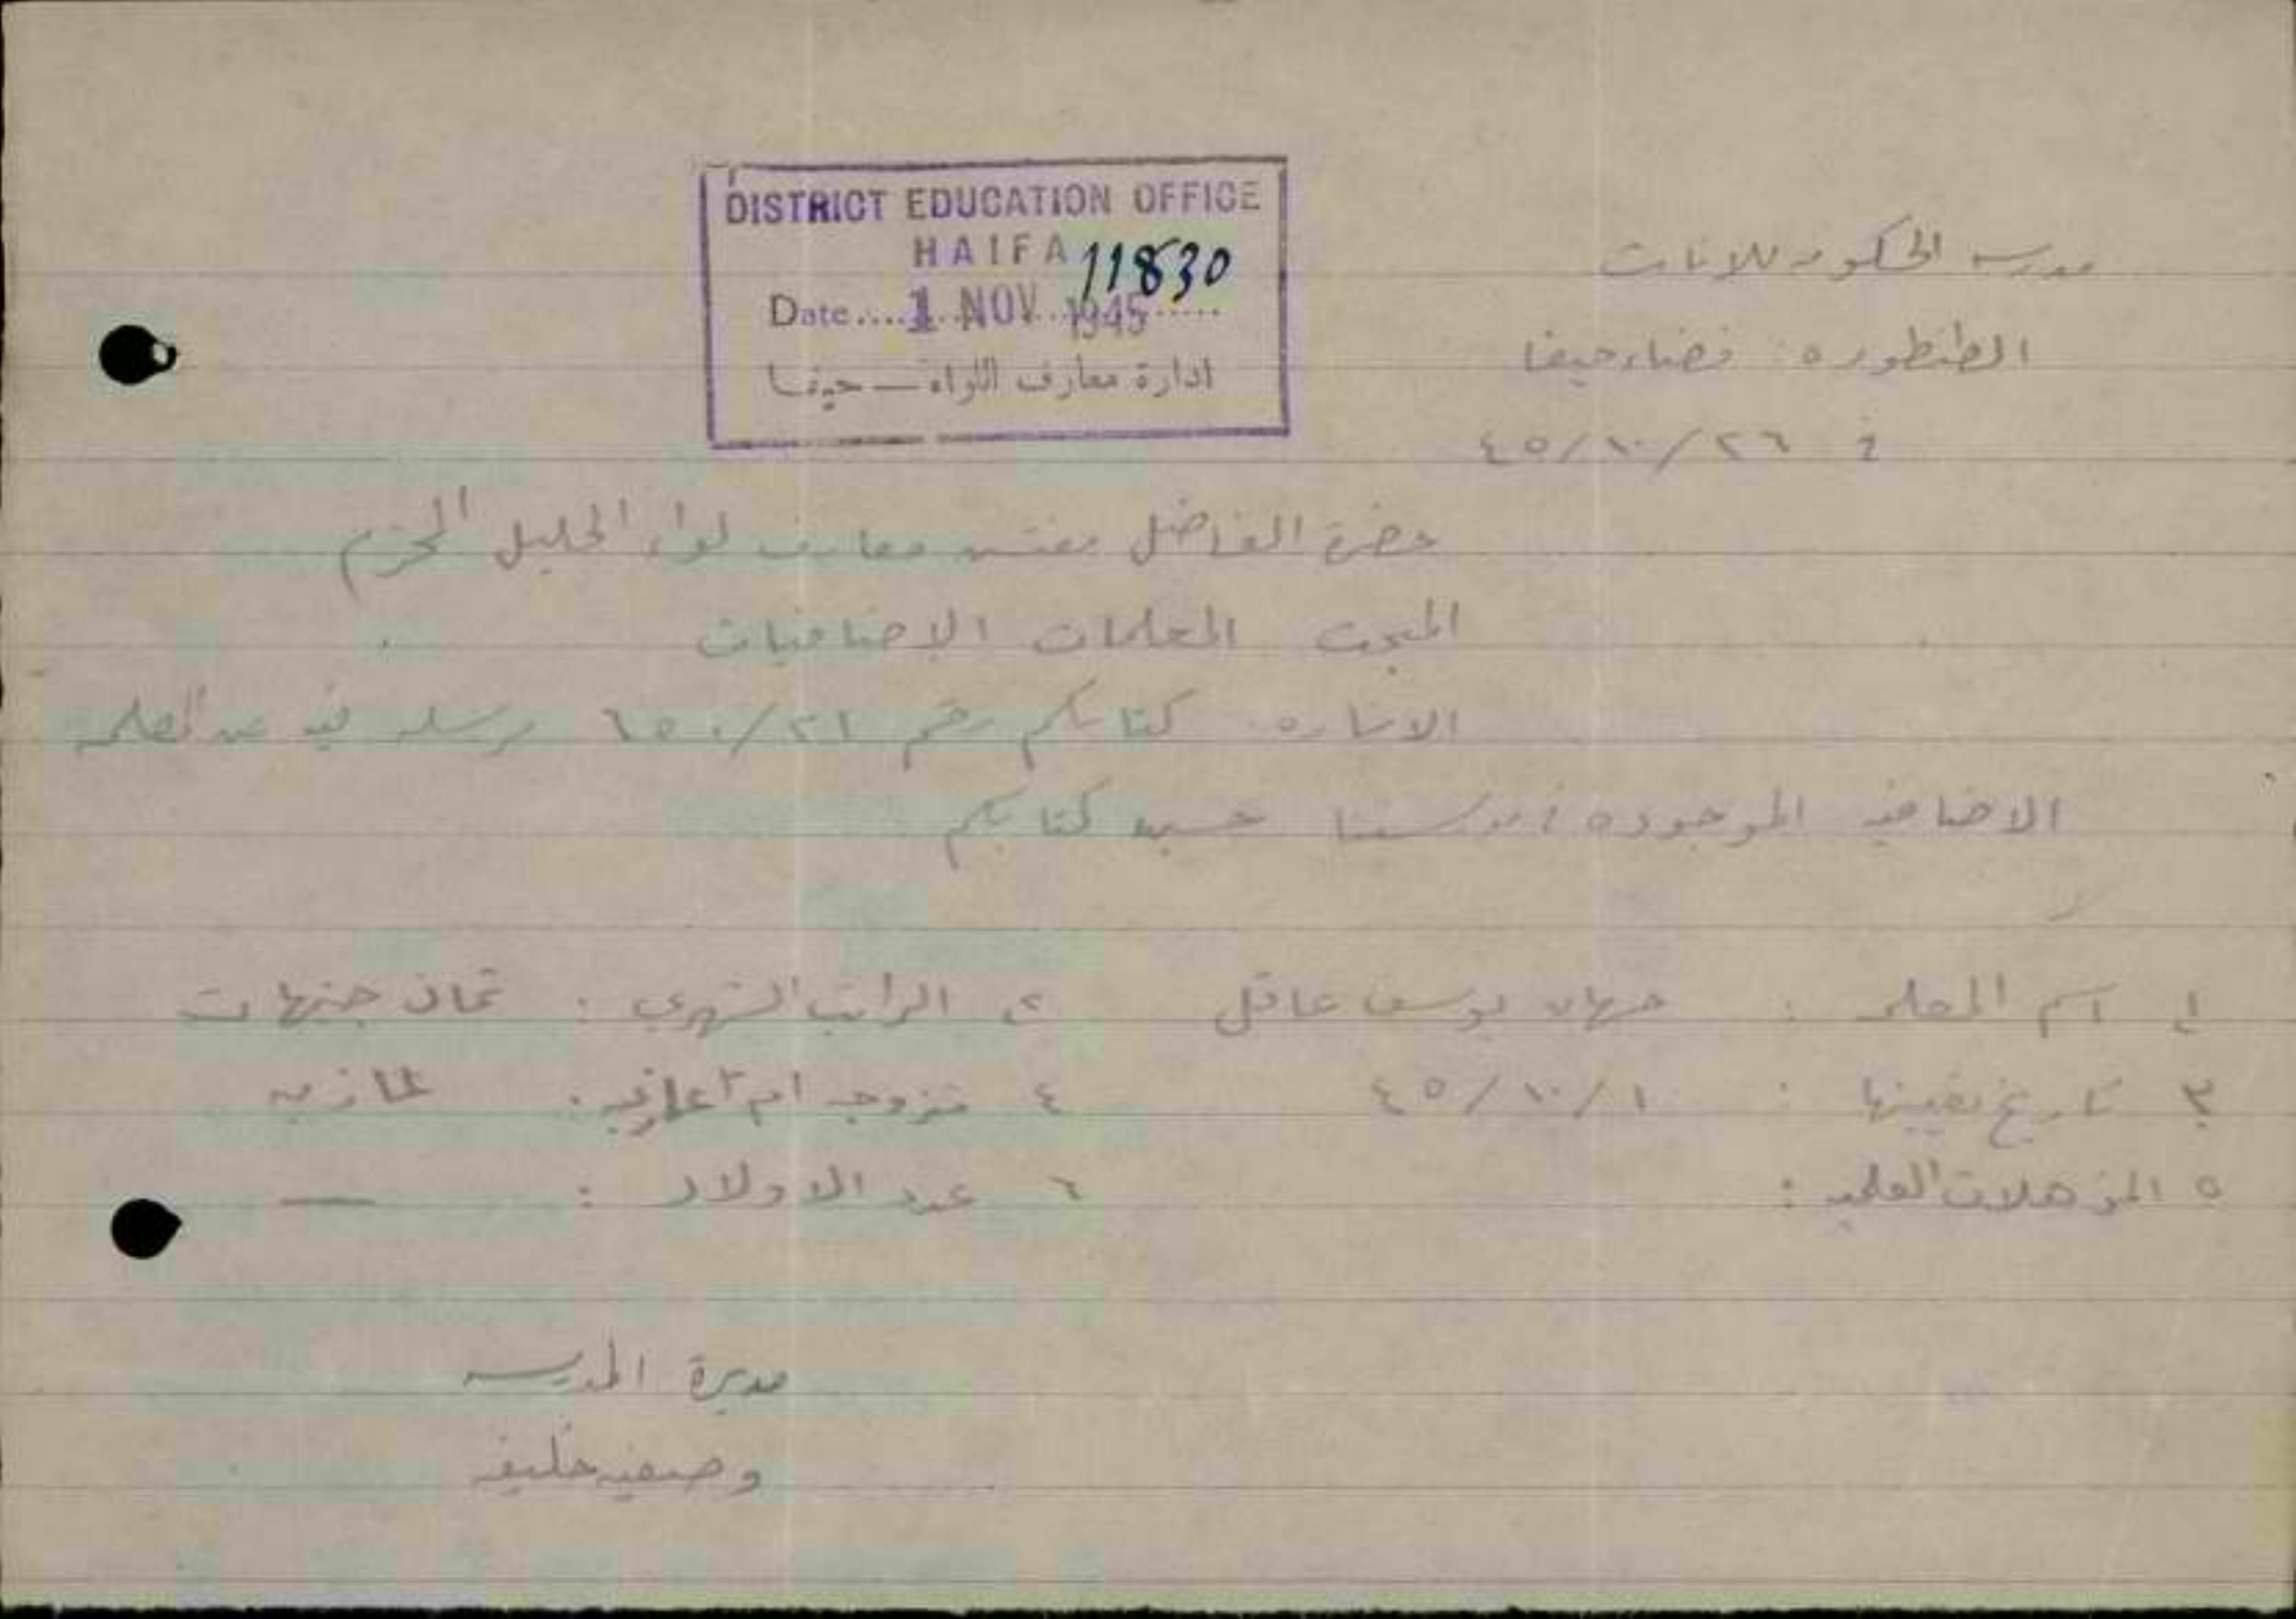 DISTRICT EDUCATION OFFICE
HAIFA 11830
Date.... 1 NOV 1945 .....
ادارة معارف اللواء – حيفا
مدرسه الحكومه للاناث
الطنطوره : قضاء حيفا
في ٢٦/١٠/٤٥
حضرة الفاضل مفتش معارف لواء الجليل المحترم
المبحث المعلمات الاضافيات
الاشاره . كتابكم رقم ٦٥٠/٢١ نرسل عن المعلمه
الاضافيه الموجوده في مدرستنا حسب كتابكم
١ اسم المعلمه : جهان يوسف عاقل ٢ الراتب الشهري : ثمان جنيهات
٣ تاريخ تعيينها : ١/١٠/٤٥ ٤ متزوجه ام عازبه : عازبه
٥ المؤهلات العلميه : ٦ عدد الاولاد : —
مديرة المدرسه
وصفيه خليفه